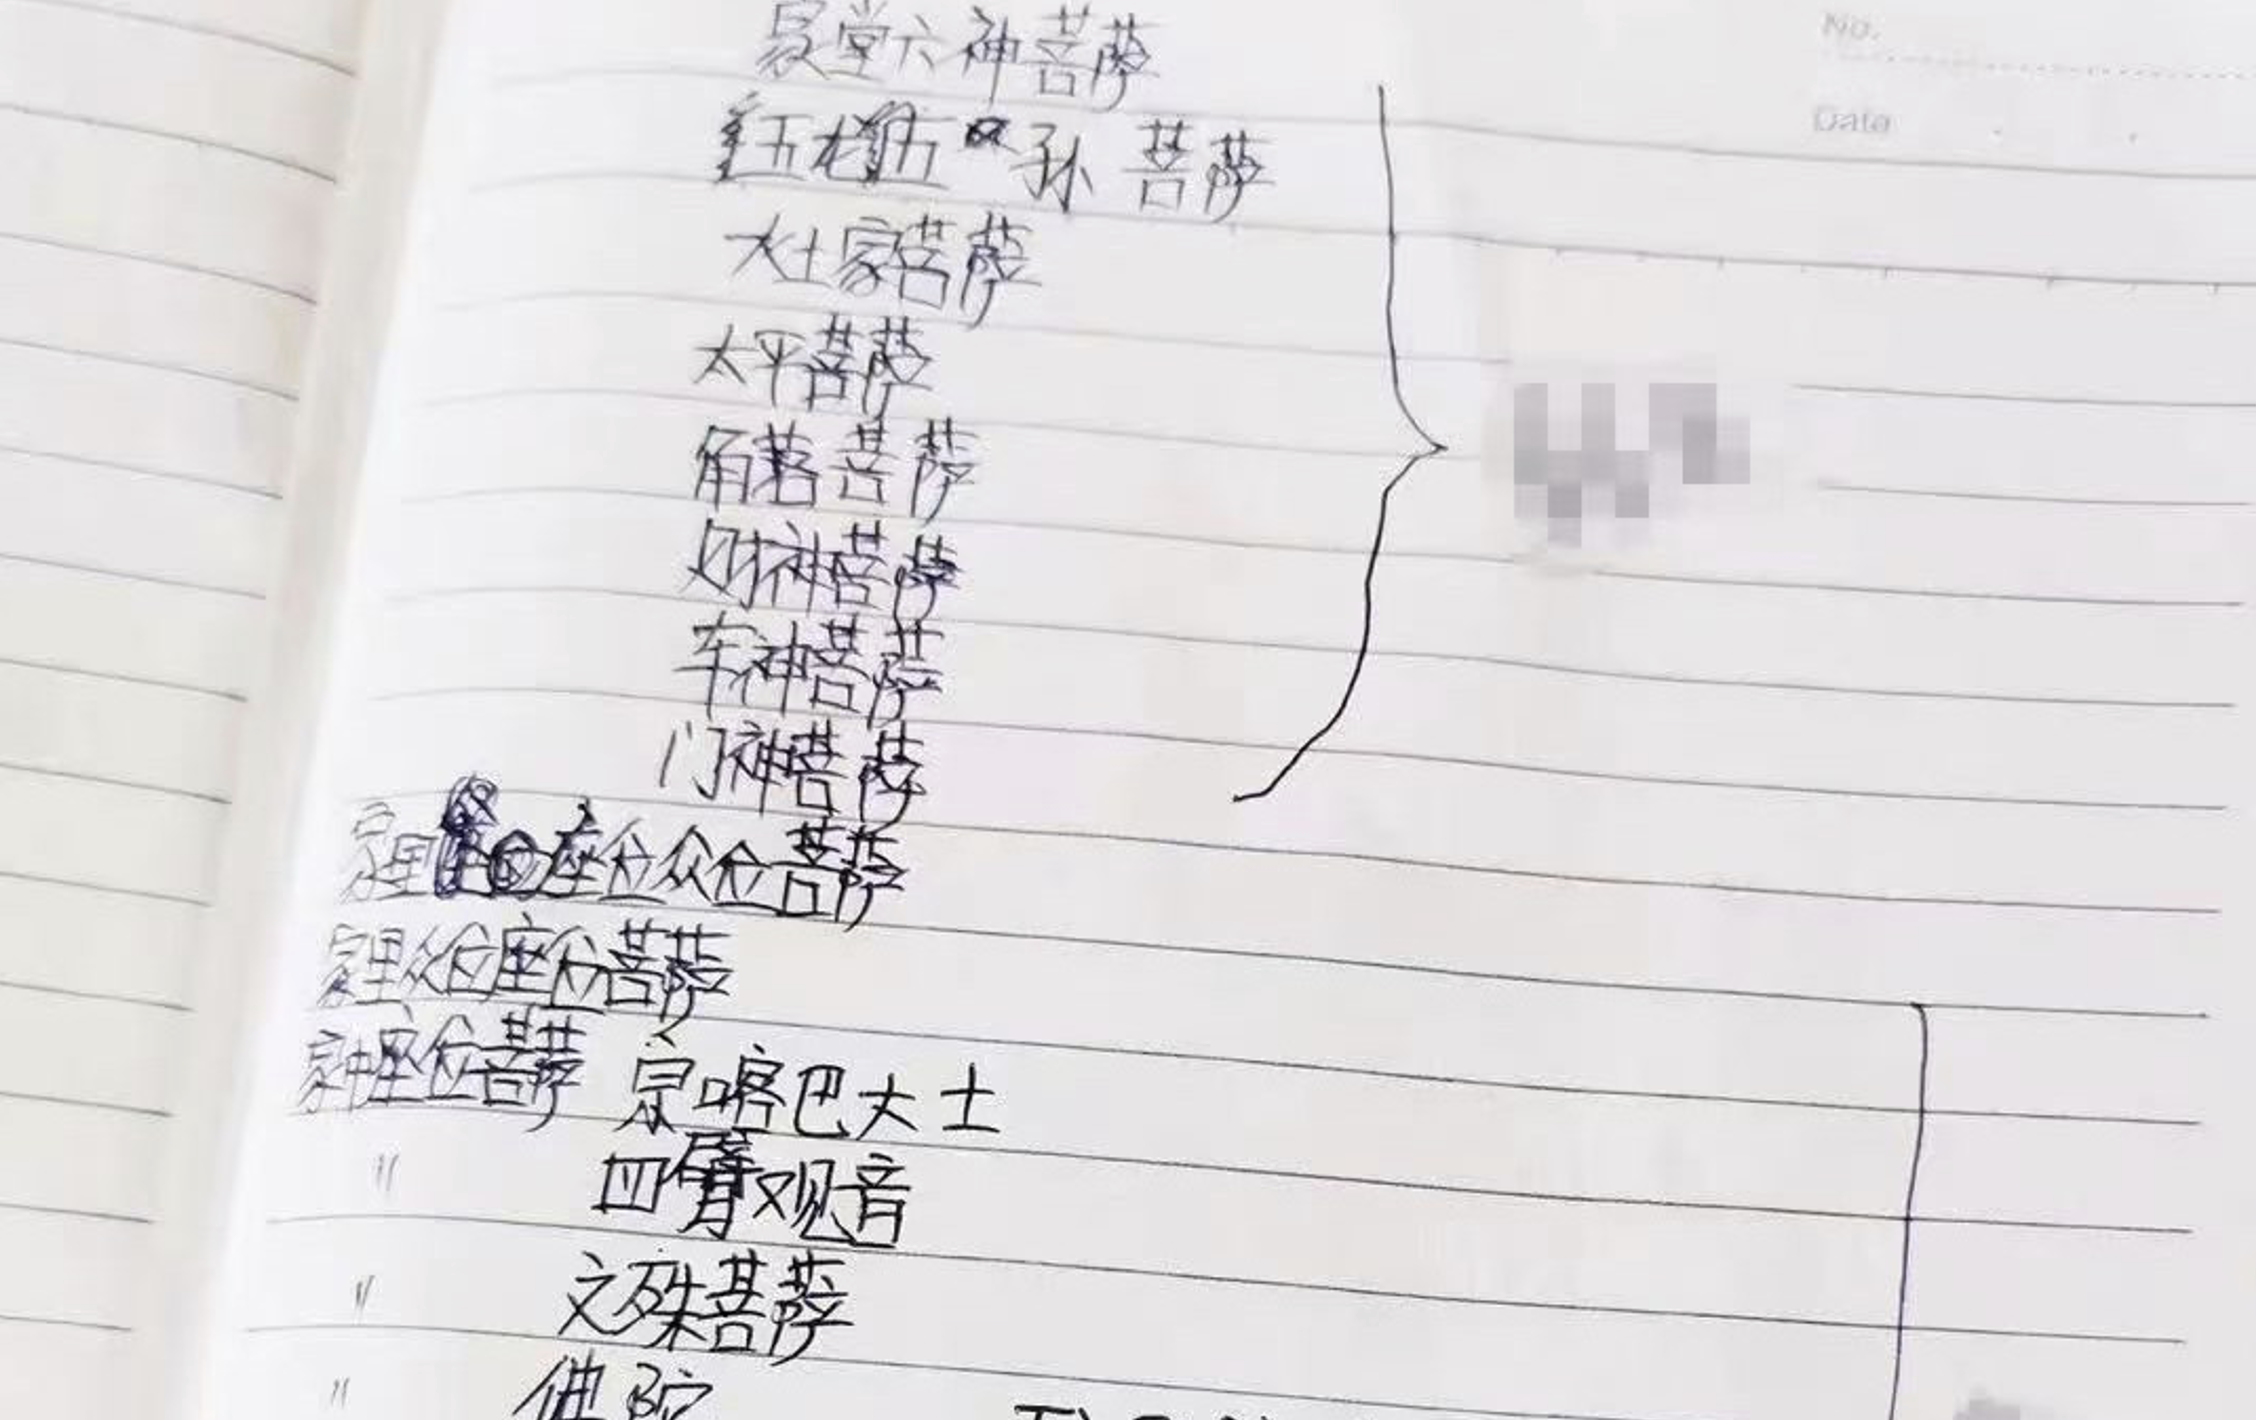 No.
Date
家堂六神菩萨
五 五 孙菩萨
大灶家菩萨
太平菩萨
角落菩萨
财神菩萨
车神菩萨
门神菩萨
家里座位众位菩萨
家里众位座位菩萨
家中座位菩萨 宗喀巴大士
〃 四臂观音
〃 文殊菩萨
〃 佛陀